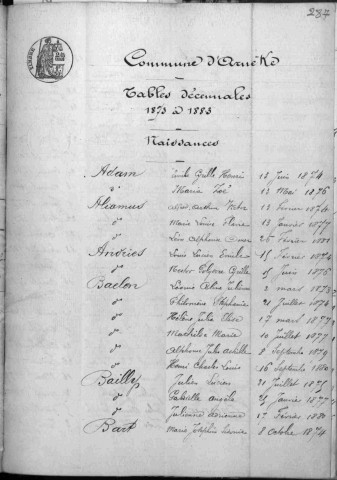 287
Commune d'Arnèke
Tables décennales
1873 à 1883
Naissances
Adam Emile Cyrille Henri 18 Juin 1874
d° Maria Zoé 12 Mai 1876
Aliamus Victor 12 Février 1874
d° Marie Louise Flavie 13 Janvier 1877
d° Léon Alphonse 26 Février 1881
Andries Louis Lucien Emile 15 Février 1874
d° Nestor Cyrille 15 Juin 1875
Baelen Léonie Julienne 2 mars 1873
d° Philomène Stéphanie 21 Juillet 1874
d° Hélène Julie Elise 17 mars
d° Mathilde Marie 10 Juillet 1877
d° Alphonse Jules Achille 8 Septembre 1879
d° Henri Charles Louis 16 Septembre 1880
Bailly Julien Lucien 21 Juillet 1875
d° Gabrielle Angèle 25 Janvier 1877
d° Julienne Adrienne 12 Février 1880
Bart Marie Joséphine Léonie 8 octobre 1874